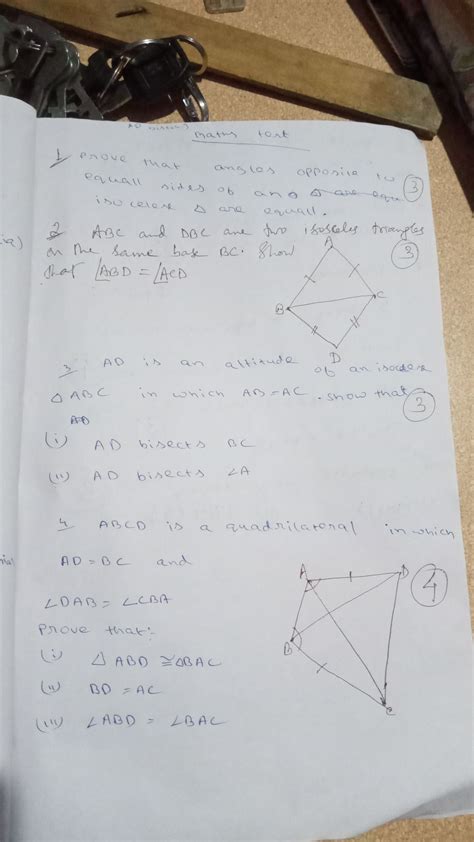 Maths test
1 Prove that angles opposite to
equall sides of an are equ
isoceles Δ are equall. (3)
2 ABC and DBC are two isosceles triangles
on the same base BC. Show
that ∠ABD = ∠ACD (3)
A
B
C
D
3 AD is an altitude of an isoceles
Δ ABC in which AB = AC. show that (3)
AD
(i) AD bisects BC
(ii) AD bisects ∠A
4 ABCD is a quadrilateral in which
AD = BC and (4)
∠DAB = ∠CBA
Prove that:
(i) Δ ABD ≅ ΔBAC
(ii) BD = AC
(iii) ∠ABD = ∠BAC
A
D
B
C